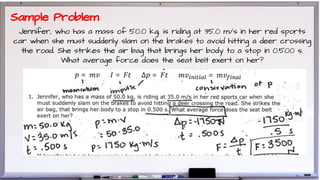 Sample Problem
Jennifer, who has a mass of 50.0 kg, is riding at 35.0 m/s in her red sports
car when she must suddenly slam on the brakes to avoid hitting a deer crossing
the road. She strikes the air bag that brings her body to a stop in 0.500 s.
What average force does the seat belt exert on her?
p = mv I = Ft Δp = Ft mv initial = mv final
momentum impulse conservation of p
1. Jennifer, who has a mass of 50.0 kg, is riding at 35.0 m/s in her red sports car when she
must suddenly slam on the brakes to avoid hitting a deer crossing the road. She strikes the
air bag, that brings her body to a stop in 0.500 s. What average force does the seat belt
exert on her?
m: 50.0 kg
V = 35.0 m/s
t = .500 s
p = m·v
= 50·35.0
p = 1750 kg·m/s
Δp = -1750 N
t = .500 s
F = Δp
t
-1750 kg·m/s
.5 s
F = 3500 N